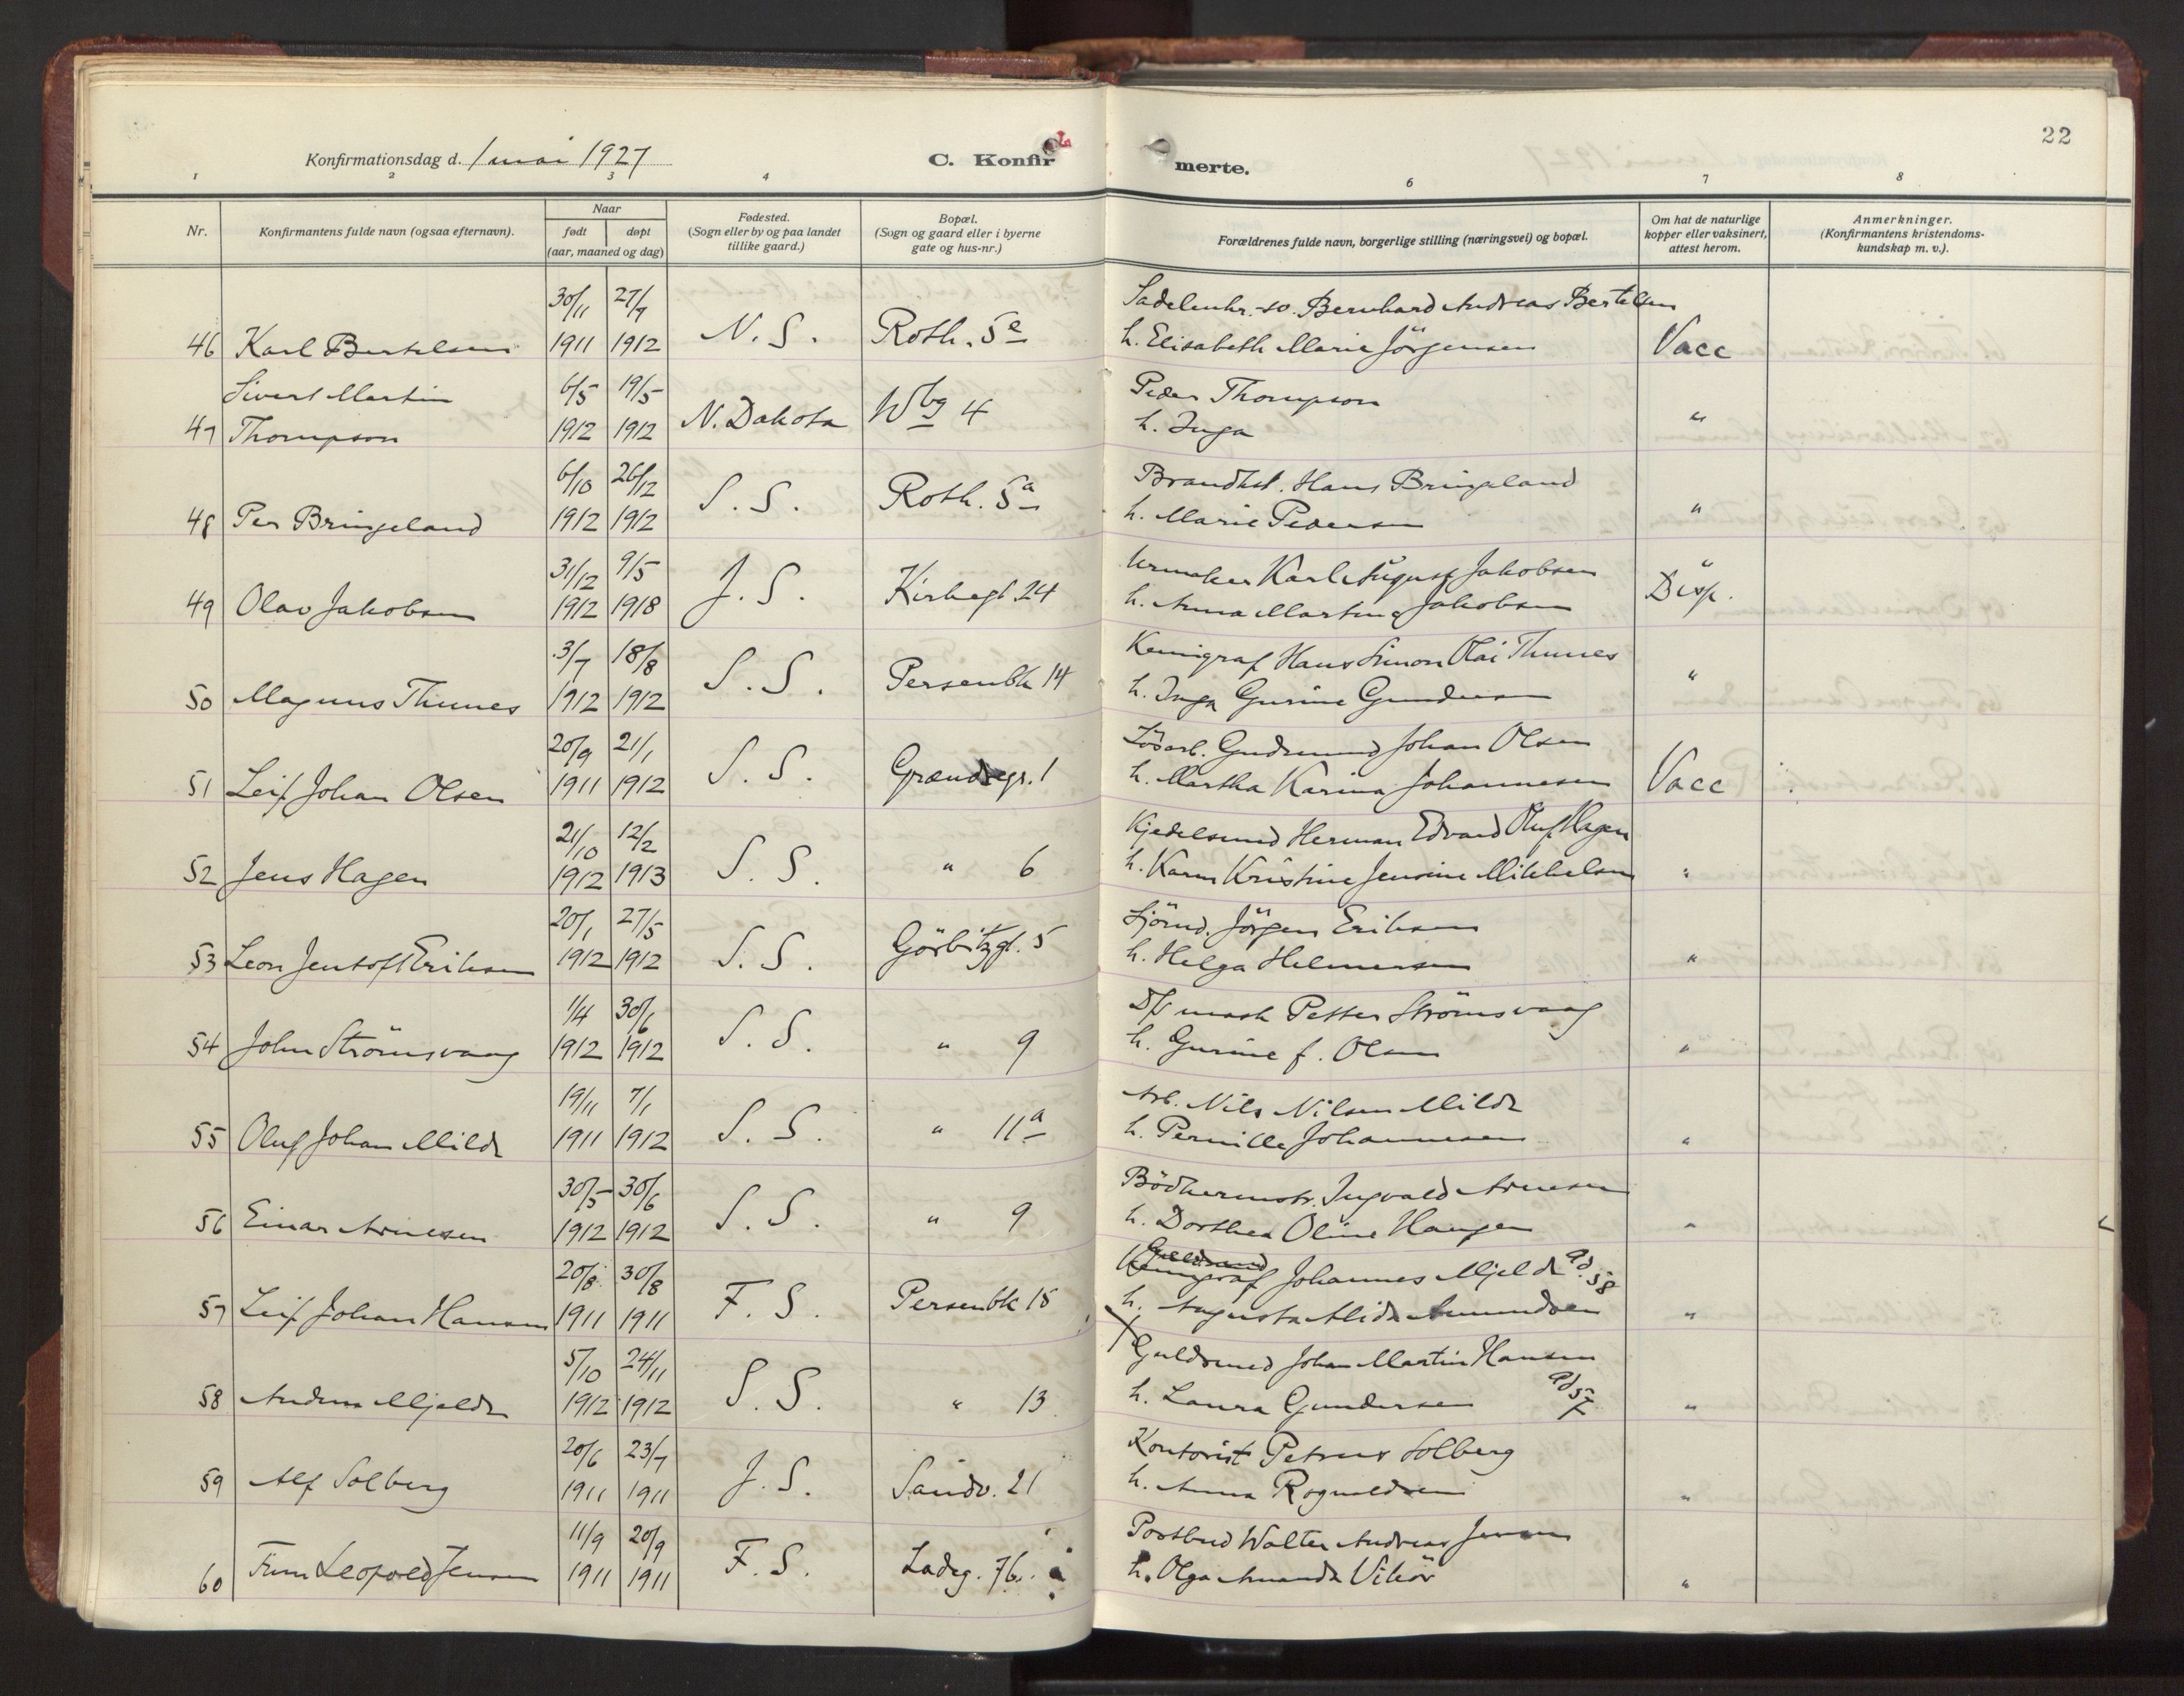 22
Konfirmationsdag d. 1 mai 1927
C. Konfirmerte.
1 2 3 4 6 7 8
Nr.
Konfirmantens fulde navn (ogsaa efternavn).
Naar
født døpt
(aar, maaned og dag)
Fødested.
(Sogn eller by og paa landet
tillike gaard.)
Bopæl.
(Sogn og gaard eller i byerne
gate og hus-nr.)
Forældrenes fulde navn, borgerlige stilling (næringsvei) og bopæl.
Om hat de naturlige
kopper eller vaksinert,
attest herom.
Anmerkninger.
(Konfirmantens kristendoms-
kundskap m. v.).
30/11 27/7 Bernhard Andreas Bertelsen
46 Karl Bertelsen 1911 1912 N. S. Roth. 5e h. Elisabeth Marie Jörgensen Vacc
Sivert Martin 6/5 19/5 Peder Thompson
47 Thompson 1912 1912 N. Dakota Wbg 4 h. Inga "
6/10 26/12 Brandkst. Hans Bringeland
48 Per Bringeland 1912 1912 S. S. Roth. 5a h. Marie Pedersen "
31/12 9/5 Urmaker Karl August Jakobsen "
49 Olav Jakobsen 1912 1918 J. S. Kirkegt. 24 h. Anna Martina Jakobsen Disp.
3/7 18/8 Kemigraf Hans Simon Olai Thunes
50 Magnus Thunes 1912 1912 S. S. Persenbk 14 h. Inga Gurine Gundersen "
20/9 21/1 Lösarb. Gudmund Johan Olsen
51 Leif Johan Olsen 1911 1912 S. S. Grændsegr. 1 h. Martha Karina Johannesen Vacc
21/10 12/2 Kjedelsmed Herman Edvard Oluf Hagen
52 Jens Hagen 1912 1913 S. S. " 6 h. Karen Kristine Jensine Mikkelsen "
20/1 27/5 Sjömd. Jörgen Eriksen
53 Leon Jentoft Eriksen 1912 1912 S. S. Görbitzgt. 5 h. Helga Helmersen "
1/4 30/6 D/S mask Petter Strömsvaag
54 John Strömsvaag 1912 1912 S. S. " 9 h. Gurine f. Olsen "
19/11 7/1 Arb. Nils Nilsen Milde
55 Oluf Johan Milde 1911 1912 S. S. " 11a h. Pernille Johannesen "
30/5 30/6 Bödkermstr. Ingvald Arnesen
56 Einar Arnesen 1912 1912 S. S. " 9 h. Dorthea Oline Haugen "
20/8 30/8 Kemigraf Johannes Mjelde ad. 58
57 Leif Johan Hansen 1911 1911 F. S. Persenbk 18 h. Augusta Alida Amundsen "
5/10 24/11 Guldsmed Johan Martin Hansen
58 Anders Mjelde 1912 1912 S. S. " 13 h. Laura Gundersen ad 57 "
20/6 23/7 Kontorist Petrus Solberg
59 Alf Solberg 1911 1911 J. S. Sandv. 21 h. Anna Rognaldsen "
11/9 20/9 Postbud Walter Andreas Jensen
60 Finn Leopold Jensen 1911 1911 F. S. Ladeg. 76 h. Olga Amanda Vikör "